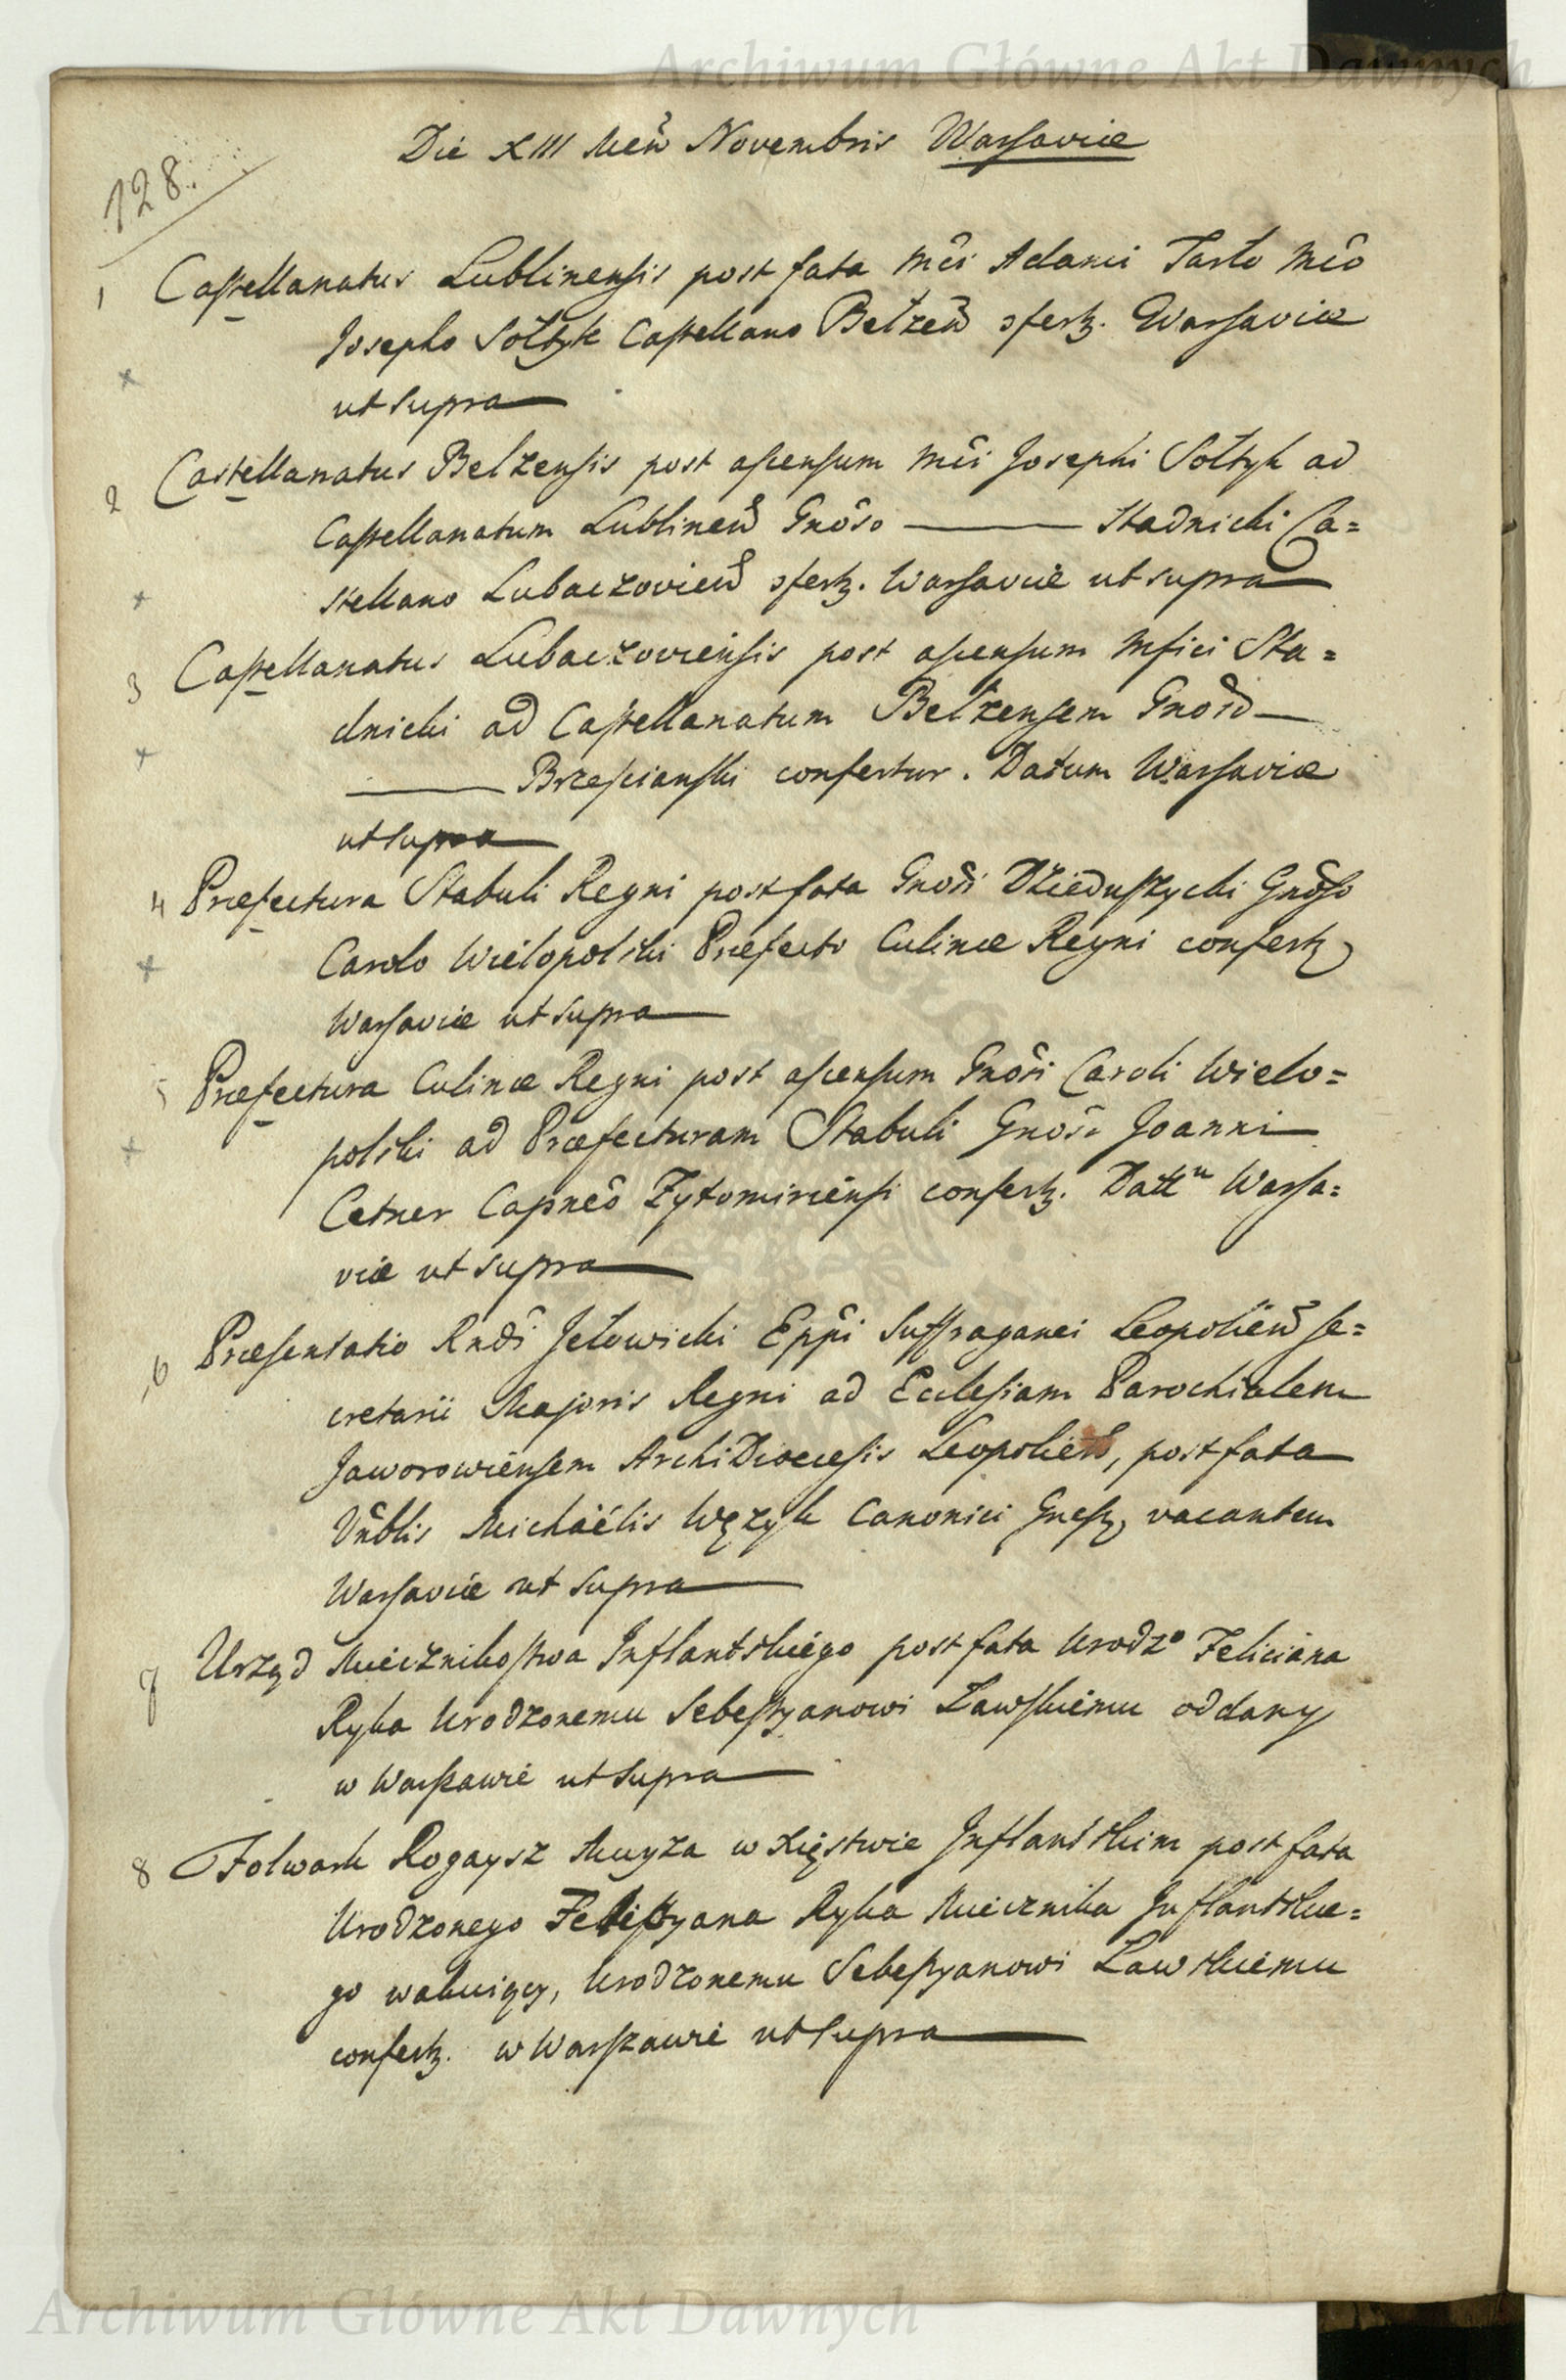 Archiwum Główne Akt Dawnych
128.
Die XIII Meñ Novembris Warsaviæ
1 Castellanatus Lublinensis post fata Mĉi Adami Tarło Mĉo
Josepho Sołtyk Castellano Bełzeñ ofertz. Warsaviæ
ut supra
2 Castellanatus Belzensis post ascensum Mĉi Josephi Sołtyk ad
Castellanatum Lublineñ Gnôso ——— Stadnicki Ca=
stellano Lubaczovieñ ofertz. Warsaviæ ut supra
3 Castellanatus Lubaczoviensis post ascensum Mfici Sta=
dnicki ad Castellanatum Bełzensem Gnoso —
——— Brzescianski confertur. Datum Warsaviæ
ut supra
4 Præfectura Stabuli Regni post fata Gnôsi Dzieduszycki Gnôso
Carolo Wielopolski Præfecto Culinæ Regni confertz
Warsaviæ ut supra
5 Præfectura Culinæ Regni post ascensum Gnôsi Caroli Wielo=
polski ad Præfecturam Stabuli Gnôso Joanni
Cetner Capneô Zytomiriensi confertz. Datt^m Warsa=
viæ ut supra
6 Præsentatio Rndî Jełowicki Eppî Suffraganei Leopolieñ se=
cretarii Majoris Regni ad Ecclesiam Parochialem
Jaworowiensem ArchiDioecesis Leopolieñ, post fata
Vnblis Michaëlis Wężyk Canonici Gnesn, vacantem
Warsaviæ ut supra
7 Urząd Miecznikostwa Inflantskiego post fata Urodz° Feliciana
Ryka Urodzonemu Sebestyanowi Ławskiemu oddany
w Warszawie ut supra
8 Folwark Rogaysz Muyza w Xięstwie Inflantskim post fata
Urodzonego Felistyana Ryka Miecznika Inflantskie=
go wakuiący, Urodzonemu Sebestyanowi Ławskiemu
confertz. w Warszawie ut supra
Archiwum Główne Akt Dawnych